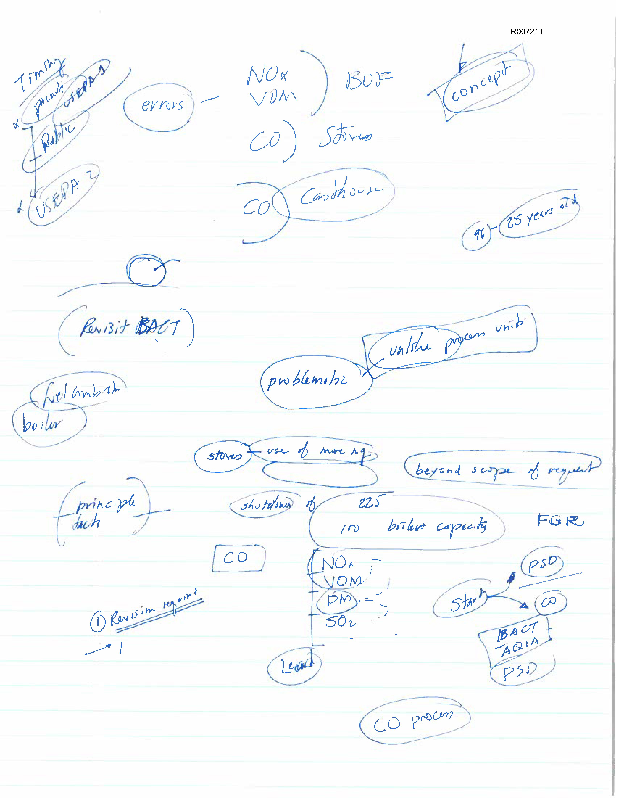 Timing
USEPA 1
Public
USEPA 2
errors – NOx
VOM
BOF
concept
CO) Stoves
CO Casthouse
96 – 25 years old
(Revisit BACT)
unlike process units
problematic
boiler
stoves – use of more ng.
beyond scope of request
principle
shutdown of 225
100 boiler capacity
FGR
CO
NOx
VOM
PM
SO2
Lead
Start
PSD
CO
BACT
AQIA
PSD
① Revision request
→ 1
CO process